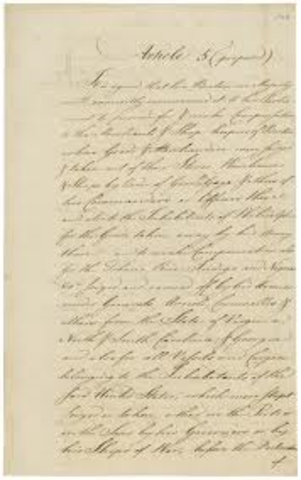 Article 5 (proposed)
It is agreed that his Britannic Majesty
will earnestly recommend it to his Parlia
ment to provide for & make Compensation
to the Merchants & Shop keepers of Boston
whose Goods & Merchandise were seized
& taken out of their Stores, Warehouses
& Shops by Order of Genl Gage & others of
his Commanders or Officers there;
and also to the Inhabitants of Philadelphia
for the Goods taken away by his Army
there; and to make Compensation also
for the Tobacco Rice Indigo and Negroes
&c seized and carried off by his Armies
under Generals Arnold, Cornwallis &
others from the State of Virginia
North & South Carolina & Georgia
and also for all Vessels and Cargoes
belonging to the Inhabitants of the
said United States, which were stopt
seized or taken, either in the Ports or
on the Seas by his Governors or by
his Ships of War, before the Declaration
of